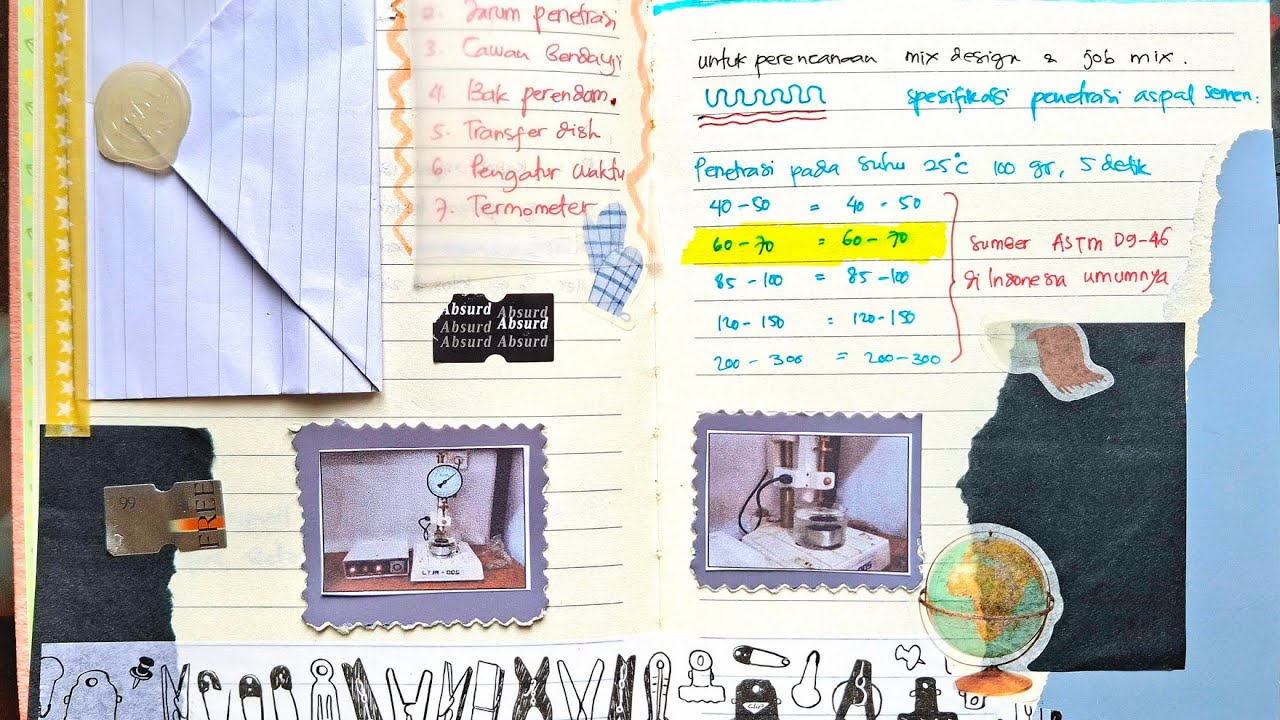 2. Jarum penetrasi
3. Cawan Bendauji
4. Bak perendam.
5. Transfer dish
6. Pengatur waktu
7. Termometer
Absurd Absurd
Absurd Absurd
Absurd Absurd
99
FREE
LTJR-005
untuk perencanaan mix design & job mix.
spesifikasi penetrasi aspal semen:
Penetrasi pada suhu 25°C 100 gr, 5 detik
40-50 = 40-50
60-70 = 60-70
85-100 = 85-100
120-150 = 120-150
200-300 = 200-300
Sumber ASTM D9-46
di Indonesia umumnya